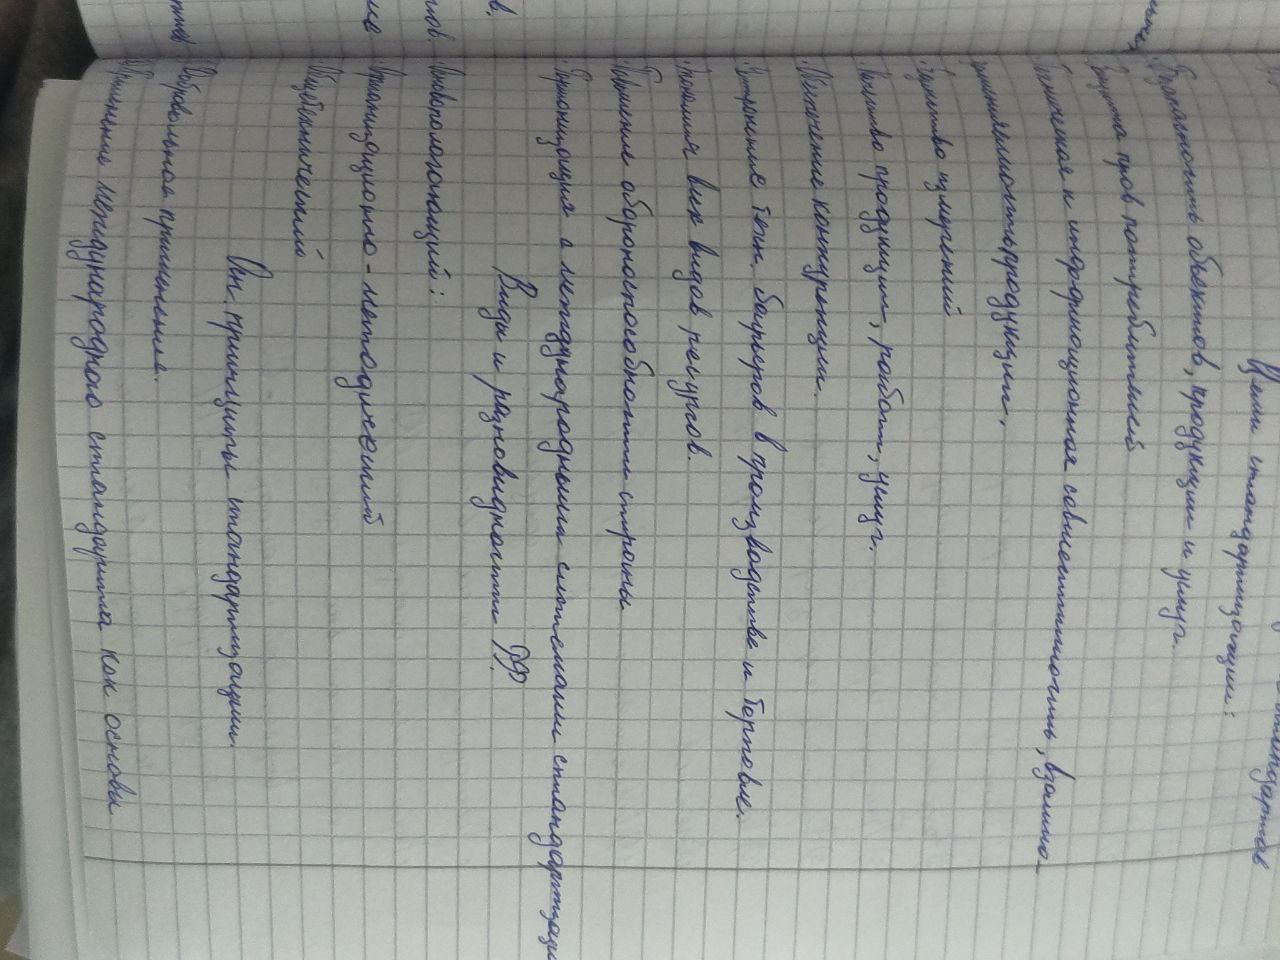 стандартов
Цели стандартизации:
· Безопасность объектов, продукции и услуг.
Защита прав потребителей
Техническая и информационная совместимость, взаимо-
заменяемость продукции.
· Единство измерений
· Качество продукции, работ, услуг.
· Обеспечение конкуренции.
· Устранение техн. барьеров в производстве и торговле.
· Экономия всех видов ресурсов.
· Повышение обороноспособности страны
· Гармонизация с международными системами стандартизаци
Виды и разновидности РФ.
· Основополагающий:
· Организационно - методический
· Общетехнический
Осн. принципы стандартизации.
Добровольное применение.
Применение международного стандарта как основы